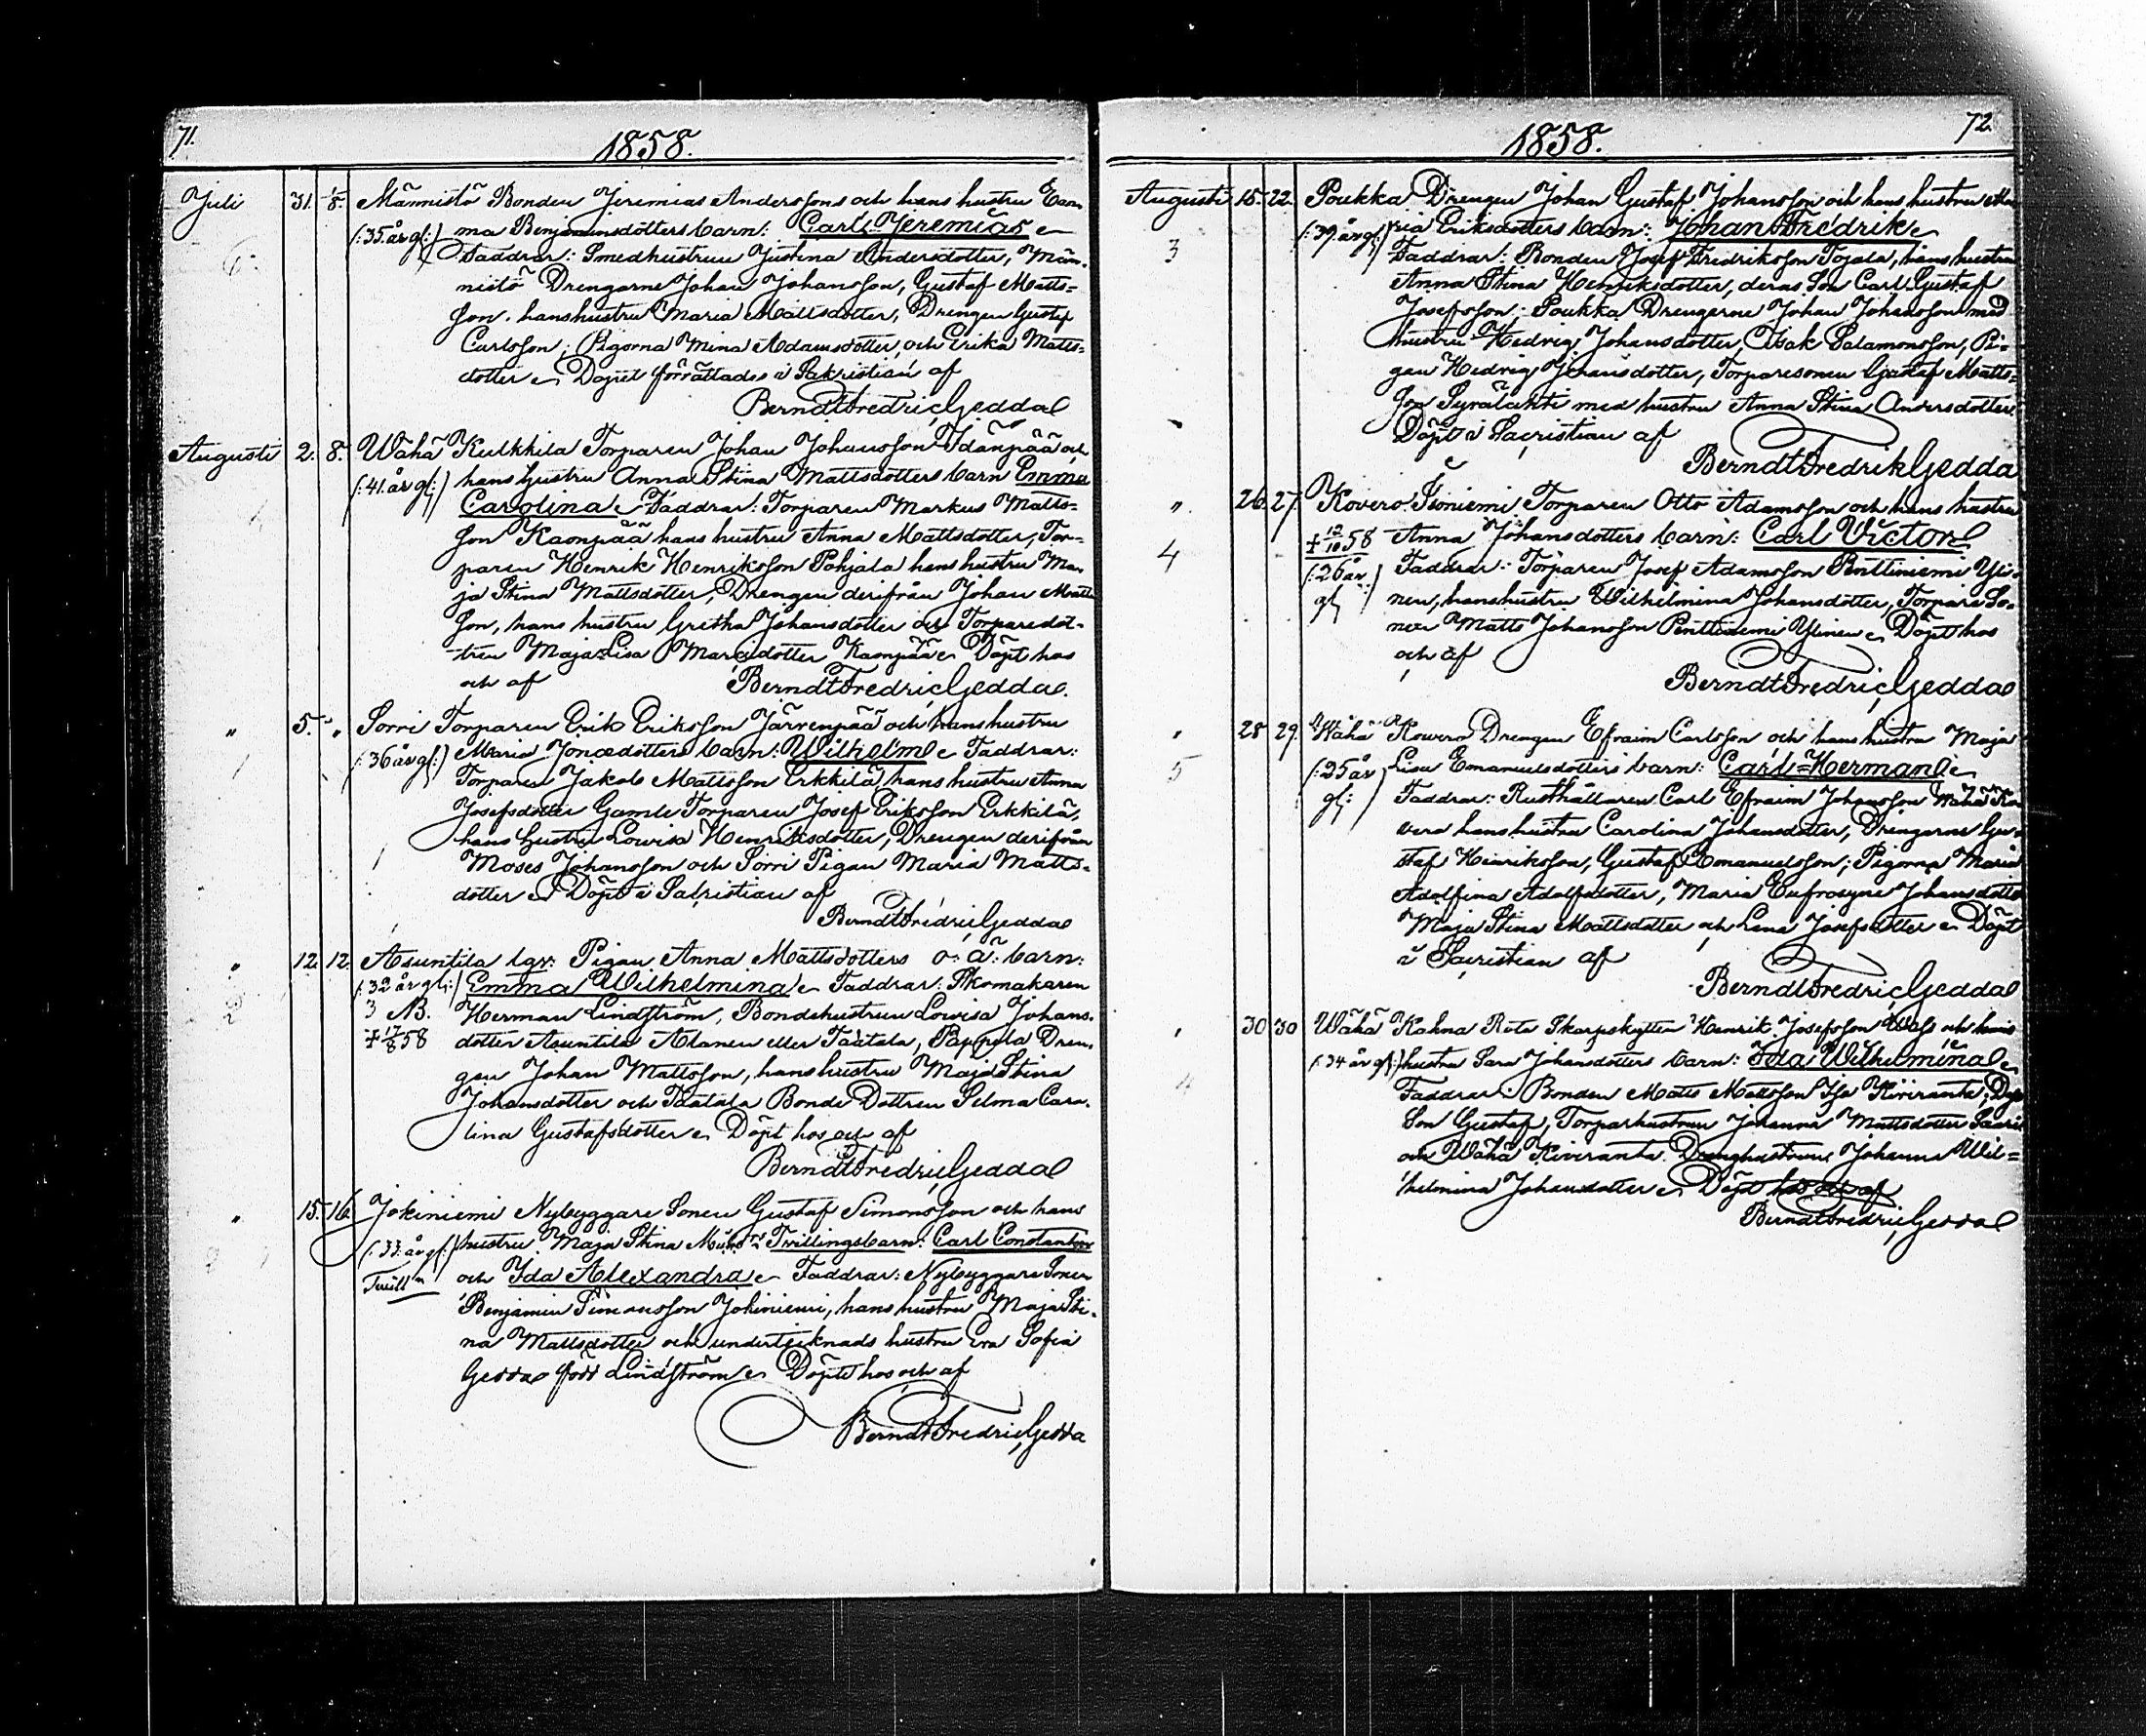 71.
1858.
Juli 31. 1/8. Männistö Bonden Jeremias Anderssons och hans hustru Em-
(:35 år gl:) ma Benjaminsdotters barn: Carl Jeremias
6 Faddrar: Smedhustrun Justina Andersdotter, Män-
nistö Drengarne Johan Johansson, Gustaf Matts-
son, hans hustru Maria Mattsdotter, Drengen Gustaf
Carlsson; Pigorna Mina Adamsdotter, och Erika Matts-
dotter Döpet förrättades i Sakristian af
Berndt Fredric Gedda
Augusti 2. 8. Wähä Keikkila Torparen Johan Johansson Idänpää och
(:41 år gl:) hans hustru Anna Stina Mattsdotters barn Emma
Carolina Faddrar: Torparen Markus Matts-
son Kaanpää hans hustru Anna Mattsdotter, Tor-
paren Henrik Henriksson Pohjala hans hustru Ma-
ja Stina Mattsdotter, Drengen derifrån Johan Matts
son, hans hustru Gretha Johansdotter och Torparedot-
tren Maja Lisa Marcidotter Kaanpää Döpt hos
och af Berndt Fredric Gedda.
" 5. " Sorri Torparen Erik Eriksson Järvenpää och hans hustru
(:36 år gl:) Maria Jonædotters barn: Wilhelm Faddrar:
Torparen Jakob Mattsson Erkkilä, hans hustru Anna
Josefsdotter Gamle Torparen Josef Eriksson Erkkilä,
hans hustru Lowisa Henriksdotter, Drengen derifrån
Moses Johansson och Sorri Pigan Maria Matts-
dotter Döpt i Sacristian af
Berndt Fredric Gedda
" 12. 12. Asuntila Pigan Anna Mattsdotters o: ä: barn:
(:32 år gl:) Emma Wilhelmina Faddrar: Skomakaren
3 NB. Herman Lindström, Bondehustrun Lowisa Johans-
+ 17/8 58 dotter Asuntila Alanen eller Taatala, Pappila Dren-
gen Johan Mattsson, hans hustru Maja Stina
Johansdotter och Taatala Bonde Dottren Selma Caro-
lina Gustafsdotter Döpt hos och af
Berndt Fredric Gedda
" 15. 16. Jokiniemi Nybyggare Sonen Gustaf Simonsson och hans
(:33 år gl:) hustru Maja Stina Twillingsbarn: Carl Constantin
och Ida Alexandra Faddrar: Nybyggare Sonen
Benjamin Simonsson Jokiniemi, hans hustru Maja Sti-
na Mattsdotter och undertecknads hustru Eva Sofia
Gedda född Lindström Döpte hos och af
Berndt Fredric Gedda
72.
1858.
Augusti 15. 22. Poukka Drengen Johan Gustaf Johansson och hans hustru Ma-
3 (:39 år gl:) ria Eriksdotters barn: Johan Fredrik
Faddrar: Bonden Josef Fredriksson Tojala, hans hustru
Anna Stina Henriksdotter, deras Son Carl Gustaf
Josefsson; Poukka Drengarne Johan Johansson med
hustru Hedvig Johansdotter, Isak Salamonsson, Pi-
gan Hedvig Johansdotter, Torparesonen Gustaf Matts-
son Syrälahti med hustru Anna Stina Andersdotter.
Döpt i Sacristian af
Berndt Fredrik Gedda
" 26. 27. Kovero Isoniemi Torparen Otto Adamsson och hans hustru
+ 12/10 58 Anna Johansdotters barn: Carl Victor
4 (:26 år Faddrar: Torparen Josef Adamsson Penttiniemi Yli-
gl:) nen, hans hustru Wilhelmina Johansdotter, Torpare So-
nen Matts Johansson Penttiniemi Ylinen Döpt hos
och af
Berndt Fredric Gedda
" 28 29. Wähä Kovero Drengen Efraim Carlsson och hans hustru Maja
5 (:25 år Lisa Emanuelsdotters barn: Carl=Herman
gl:) Faddrar: Rusthållaren Carl Efraim Johansson Wähä Ko
vero hans hustru Carolina Johansdotter, Drengarne Gu-
staf Henriksson, Gustaf Emanuelsson; Pigorna Maria
Adolfina Adolfsdotter, Maria Eufrosyne Johansdotter
Maja Stina Mattsdotter och Lena Josefsdotter Döpt
i Sacristian af
Berndt Fredric Gedda
" 30 30 Wähä Kahna Rote Skarpskytten Henrik Josefsson Wass och hans
(:34 år gl:) hustru Sara Johansdotters barn: Ida Wilhelmina
4 Faddrar: Bonden Matts Mattsson Iso Kiviranta,
Son Gustaf, Torparhustrun Johanna Mattsdotter Saari
och Wähä Kiviranta Drenghustrun Johanna Wil=
helmina Johansdotter Döpt hos och af
Berndt Fredric Gedda